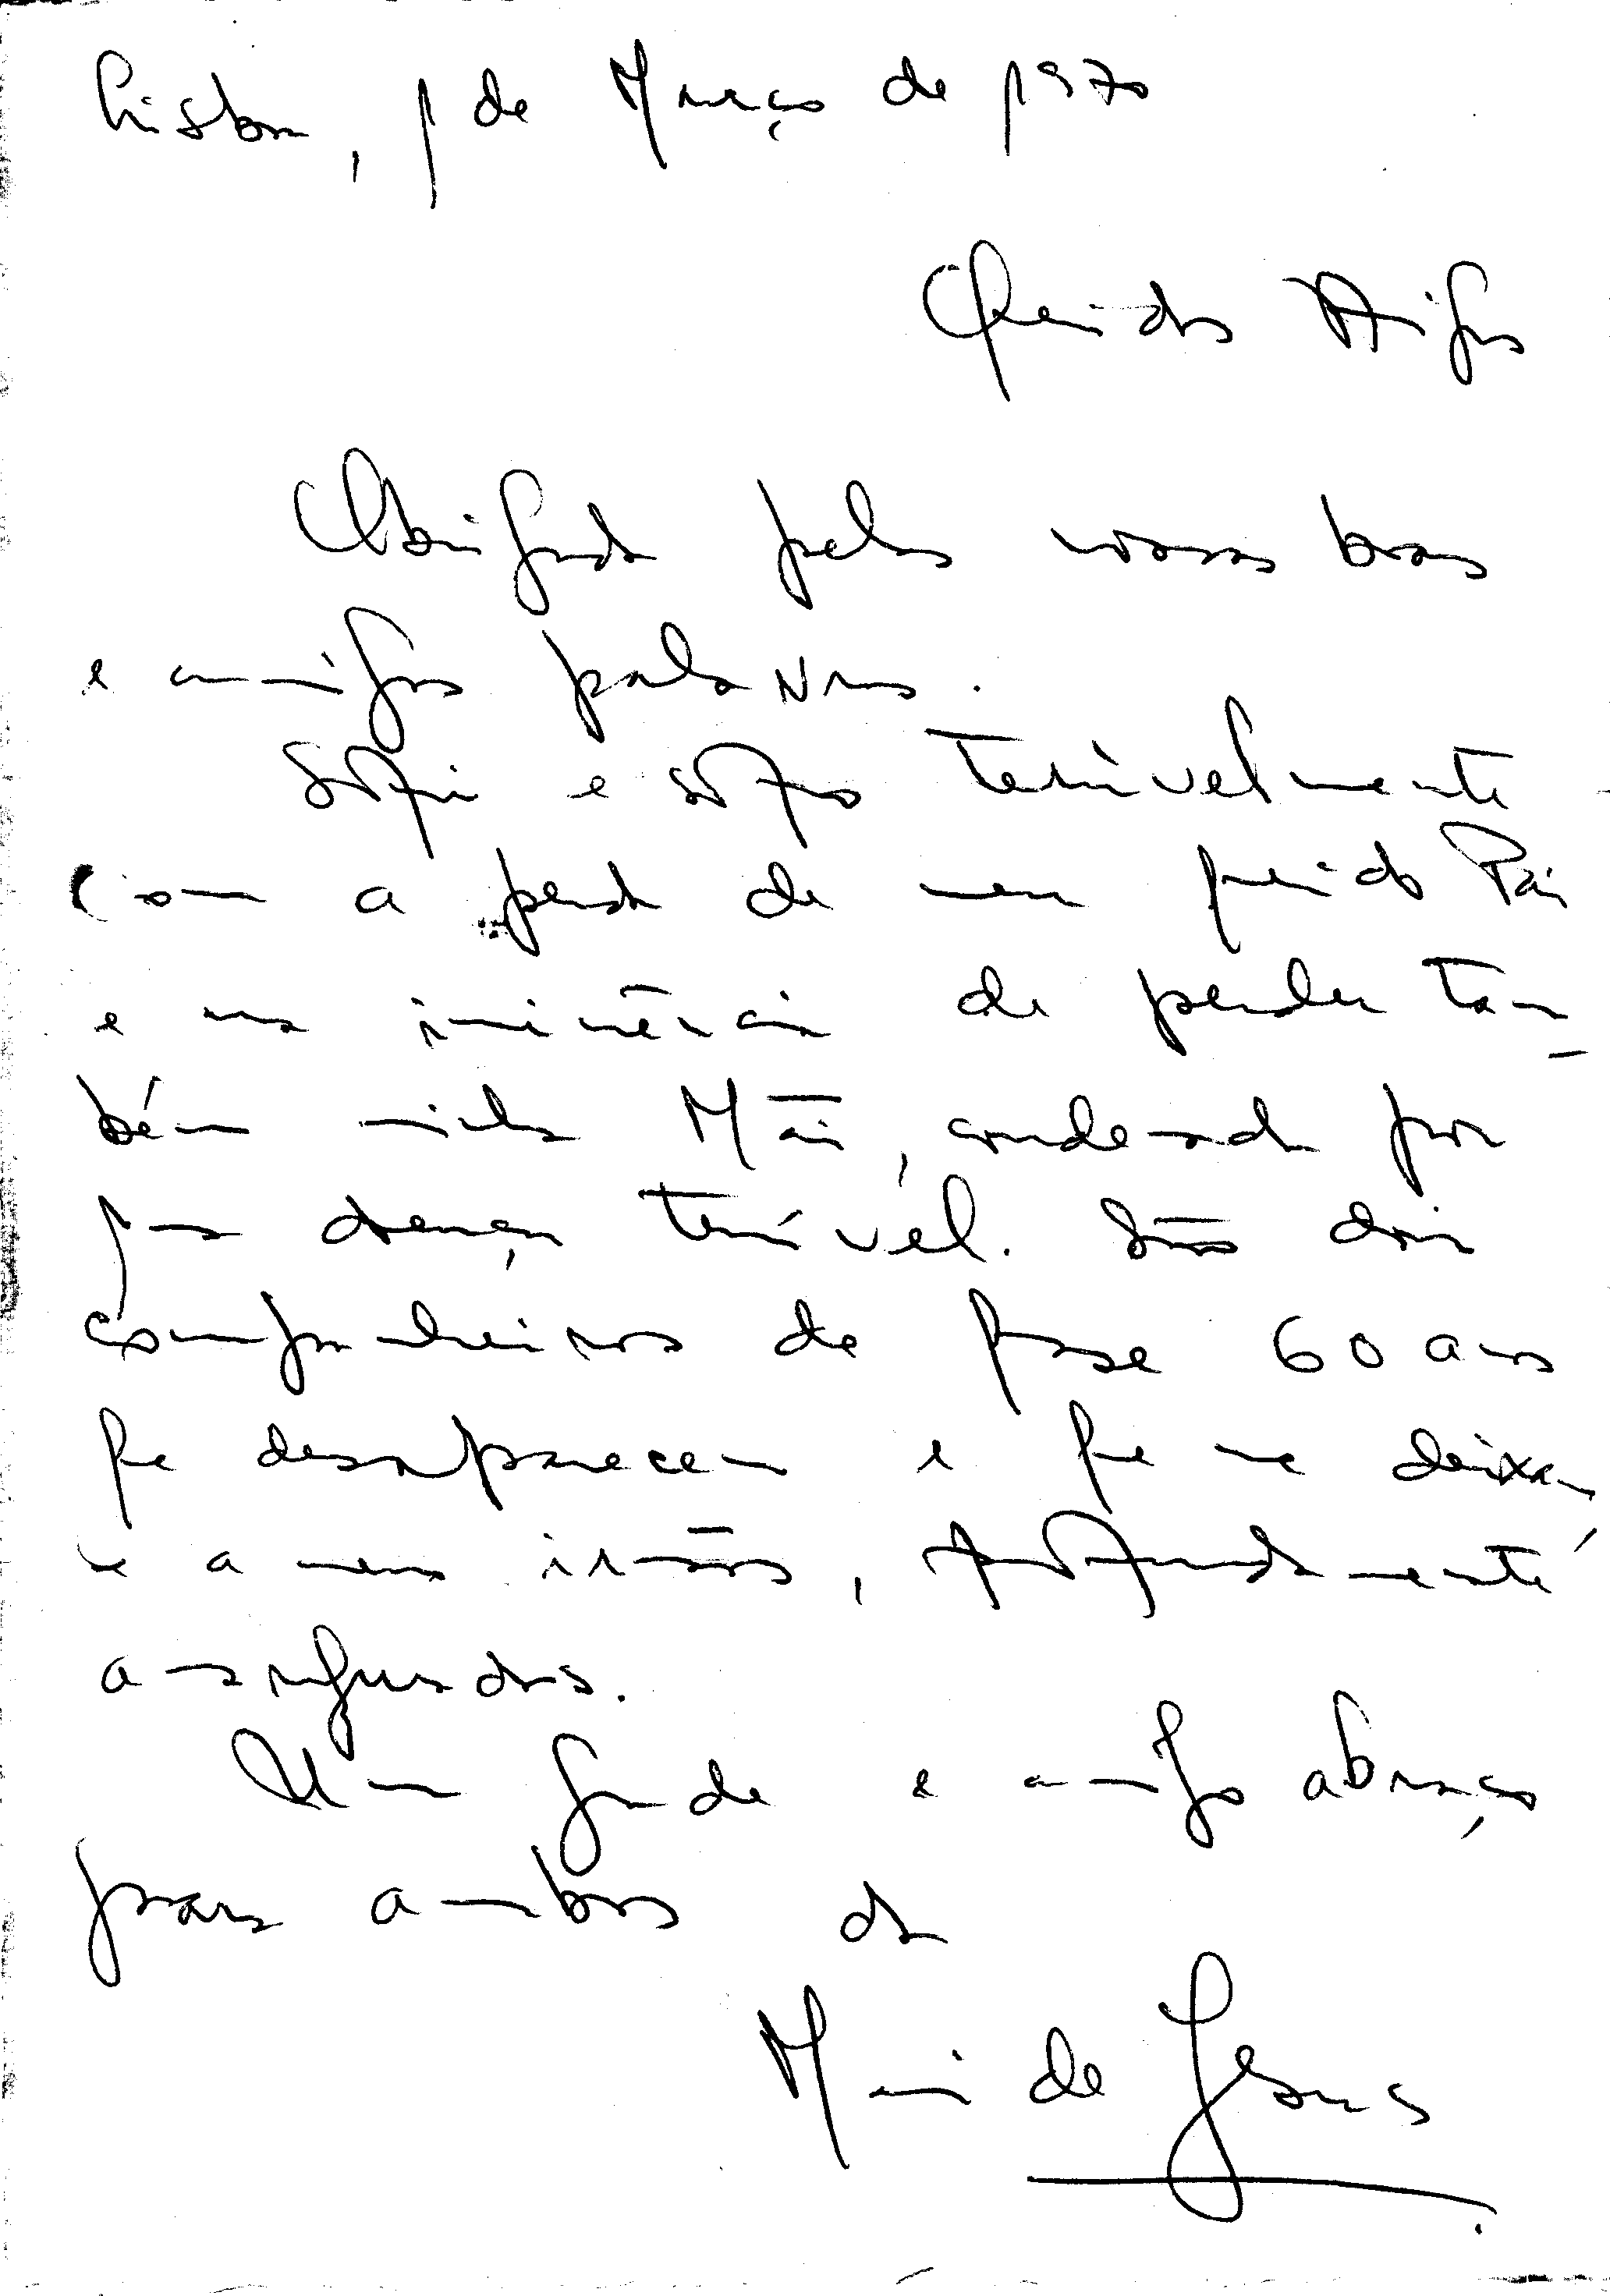 Lisboa, 1 de Março de 1970
Queridos Amigos
Obrigada pelas vossas boas
e amigas palavras.
Sofri e sofro terrivelmente
com a perda de meu querido Pai
e na iminência de perder tam-
bém minha Mãi, condenada por
doença terrível. São dois
companheiros de quase 60 anos
que desaparecem e que me deixam,
e a meus irmãos, profundamente
amargurados.
Um grande e amigo abraço
para ambos da
Maria de Jesus